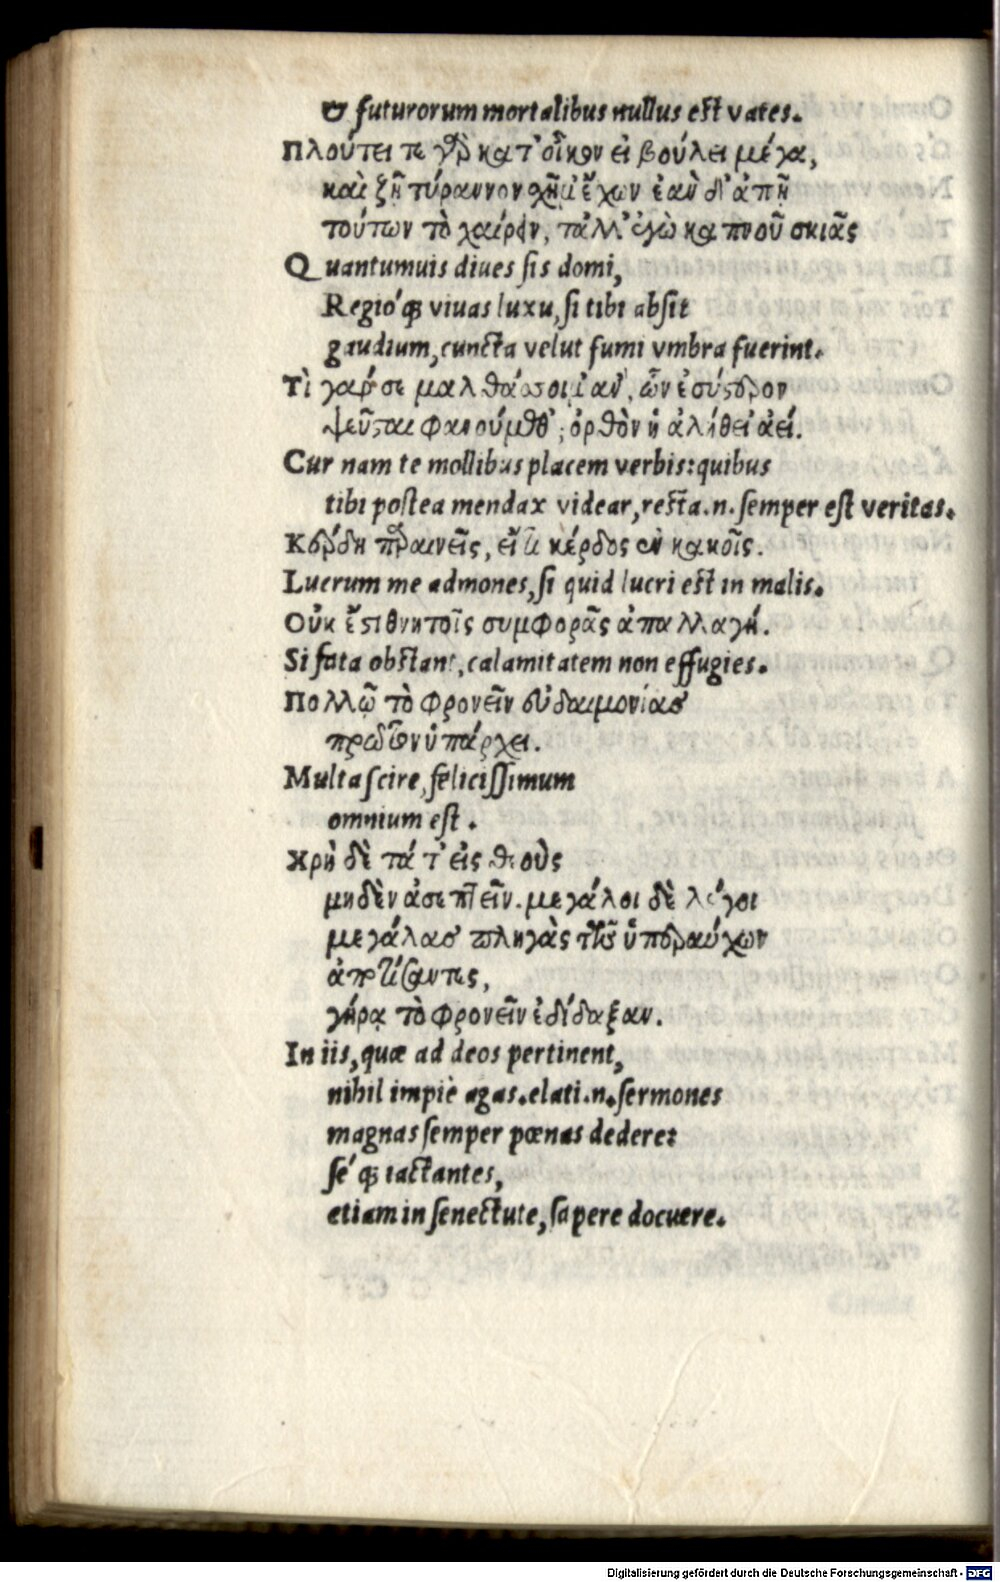 & futurorum mortalibus nullus est vates.
Πλούτει τε γὰρ κατ' οἶκον εἰ βούλει μέγα,
καὶ ζῆ τύραννον χῆμ' ἔχων ἐὰν δ' ἀπῆ
τούτων τὸ χαίρειν, τἄλλ' ἐγὼ καπνοῦ σκιᾶς
Quantumuis diues sis domi,
Regio'q; viuas luxu, si tibi absit
gaudium, cuncta velut fumi vmbra fuerint.
Τὶ γάρ σε μαλθάσσοιμ' ἂν, ὧν ἐσύστερον
ψεῦσται φανούμεθ'; ὀρθὸν ἡ ἀλήθει' ἀεί.
Cur nam te mollibus placem verbis: quibus
tibi postea mendax videar, recta.n. semper est veritas.
Κέρδη παραινεῖς, εἴ τι κέρδος ἐν κακοῖς.
Lucrum me admones, si quid lucri est in malis.
Οὐκ ἔστι θνητοῖς συμφορᾶς ἀπαλλαγή.
Si fata obstant, calamitatem non effugies.
Πολλῷ τὸ φρονεῖν εὐδαιμονίας
πρῶτον ὑπάρχει.
Multa scire, felicissimum
omnium est.
Χρὴ δὲ τά τ' εἰς θεοὺς
μηδὲν ἀσεπτεῖν. μεγάλοι δὲ λόγοι
μεγάλας πληγὰς τῶν ὑπεραύχων
ἀποτίσαντες,
γήρᾳ τὸ φρονεῖν ἐδίδαξαν.
In iis, quæ ad deos pertinent,
nihil impiè agas. elati.n. sermones
magnas semper pœnas dedere:
se'q; iactantes,
etiam in senectute, sapere docuere.
Digitalisierung gefördert durch die Deutsche Forschungsgemeinschaft - DFG